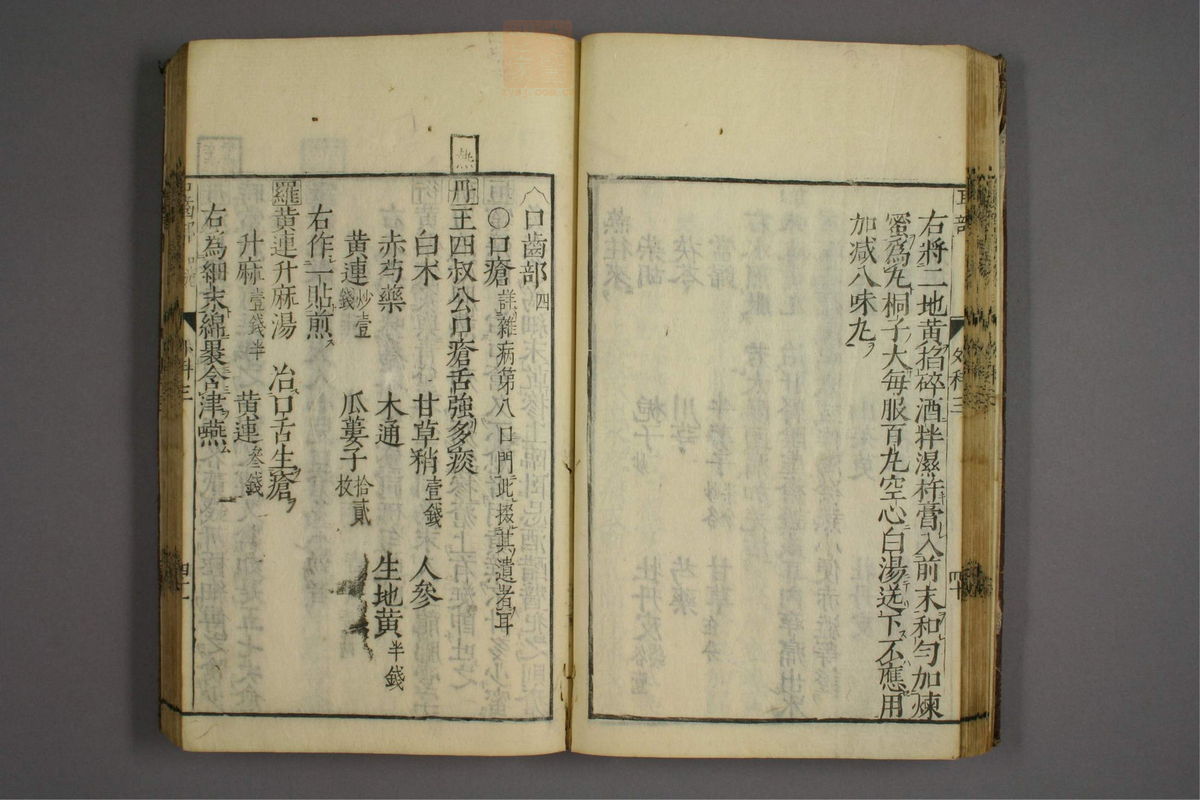 右將二地黄掐碎酒拌濕杵膏入前末和勻加煉
蜜為丸桐子大每服百丸空心白湯送下不應用
加减八味丸
耳部
外科三
四十
口齒部 四
口瘡 詳雜病第八口門此掇其遺者耳
熱
丹王四叔公口瘡舌強多痰
白朮 甘草稍 壹錢 人參
赤芍藥 木通 生地黄 半錢
黄連 炒壹錢 瓜蔞子 拾貳枚
右作一貼煎
羅黄連升麻湯 治口舌生瘡
升麻 壹錢半 黄連 叁錢
右為細末綿裹含津嚥